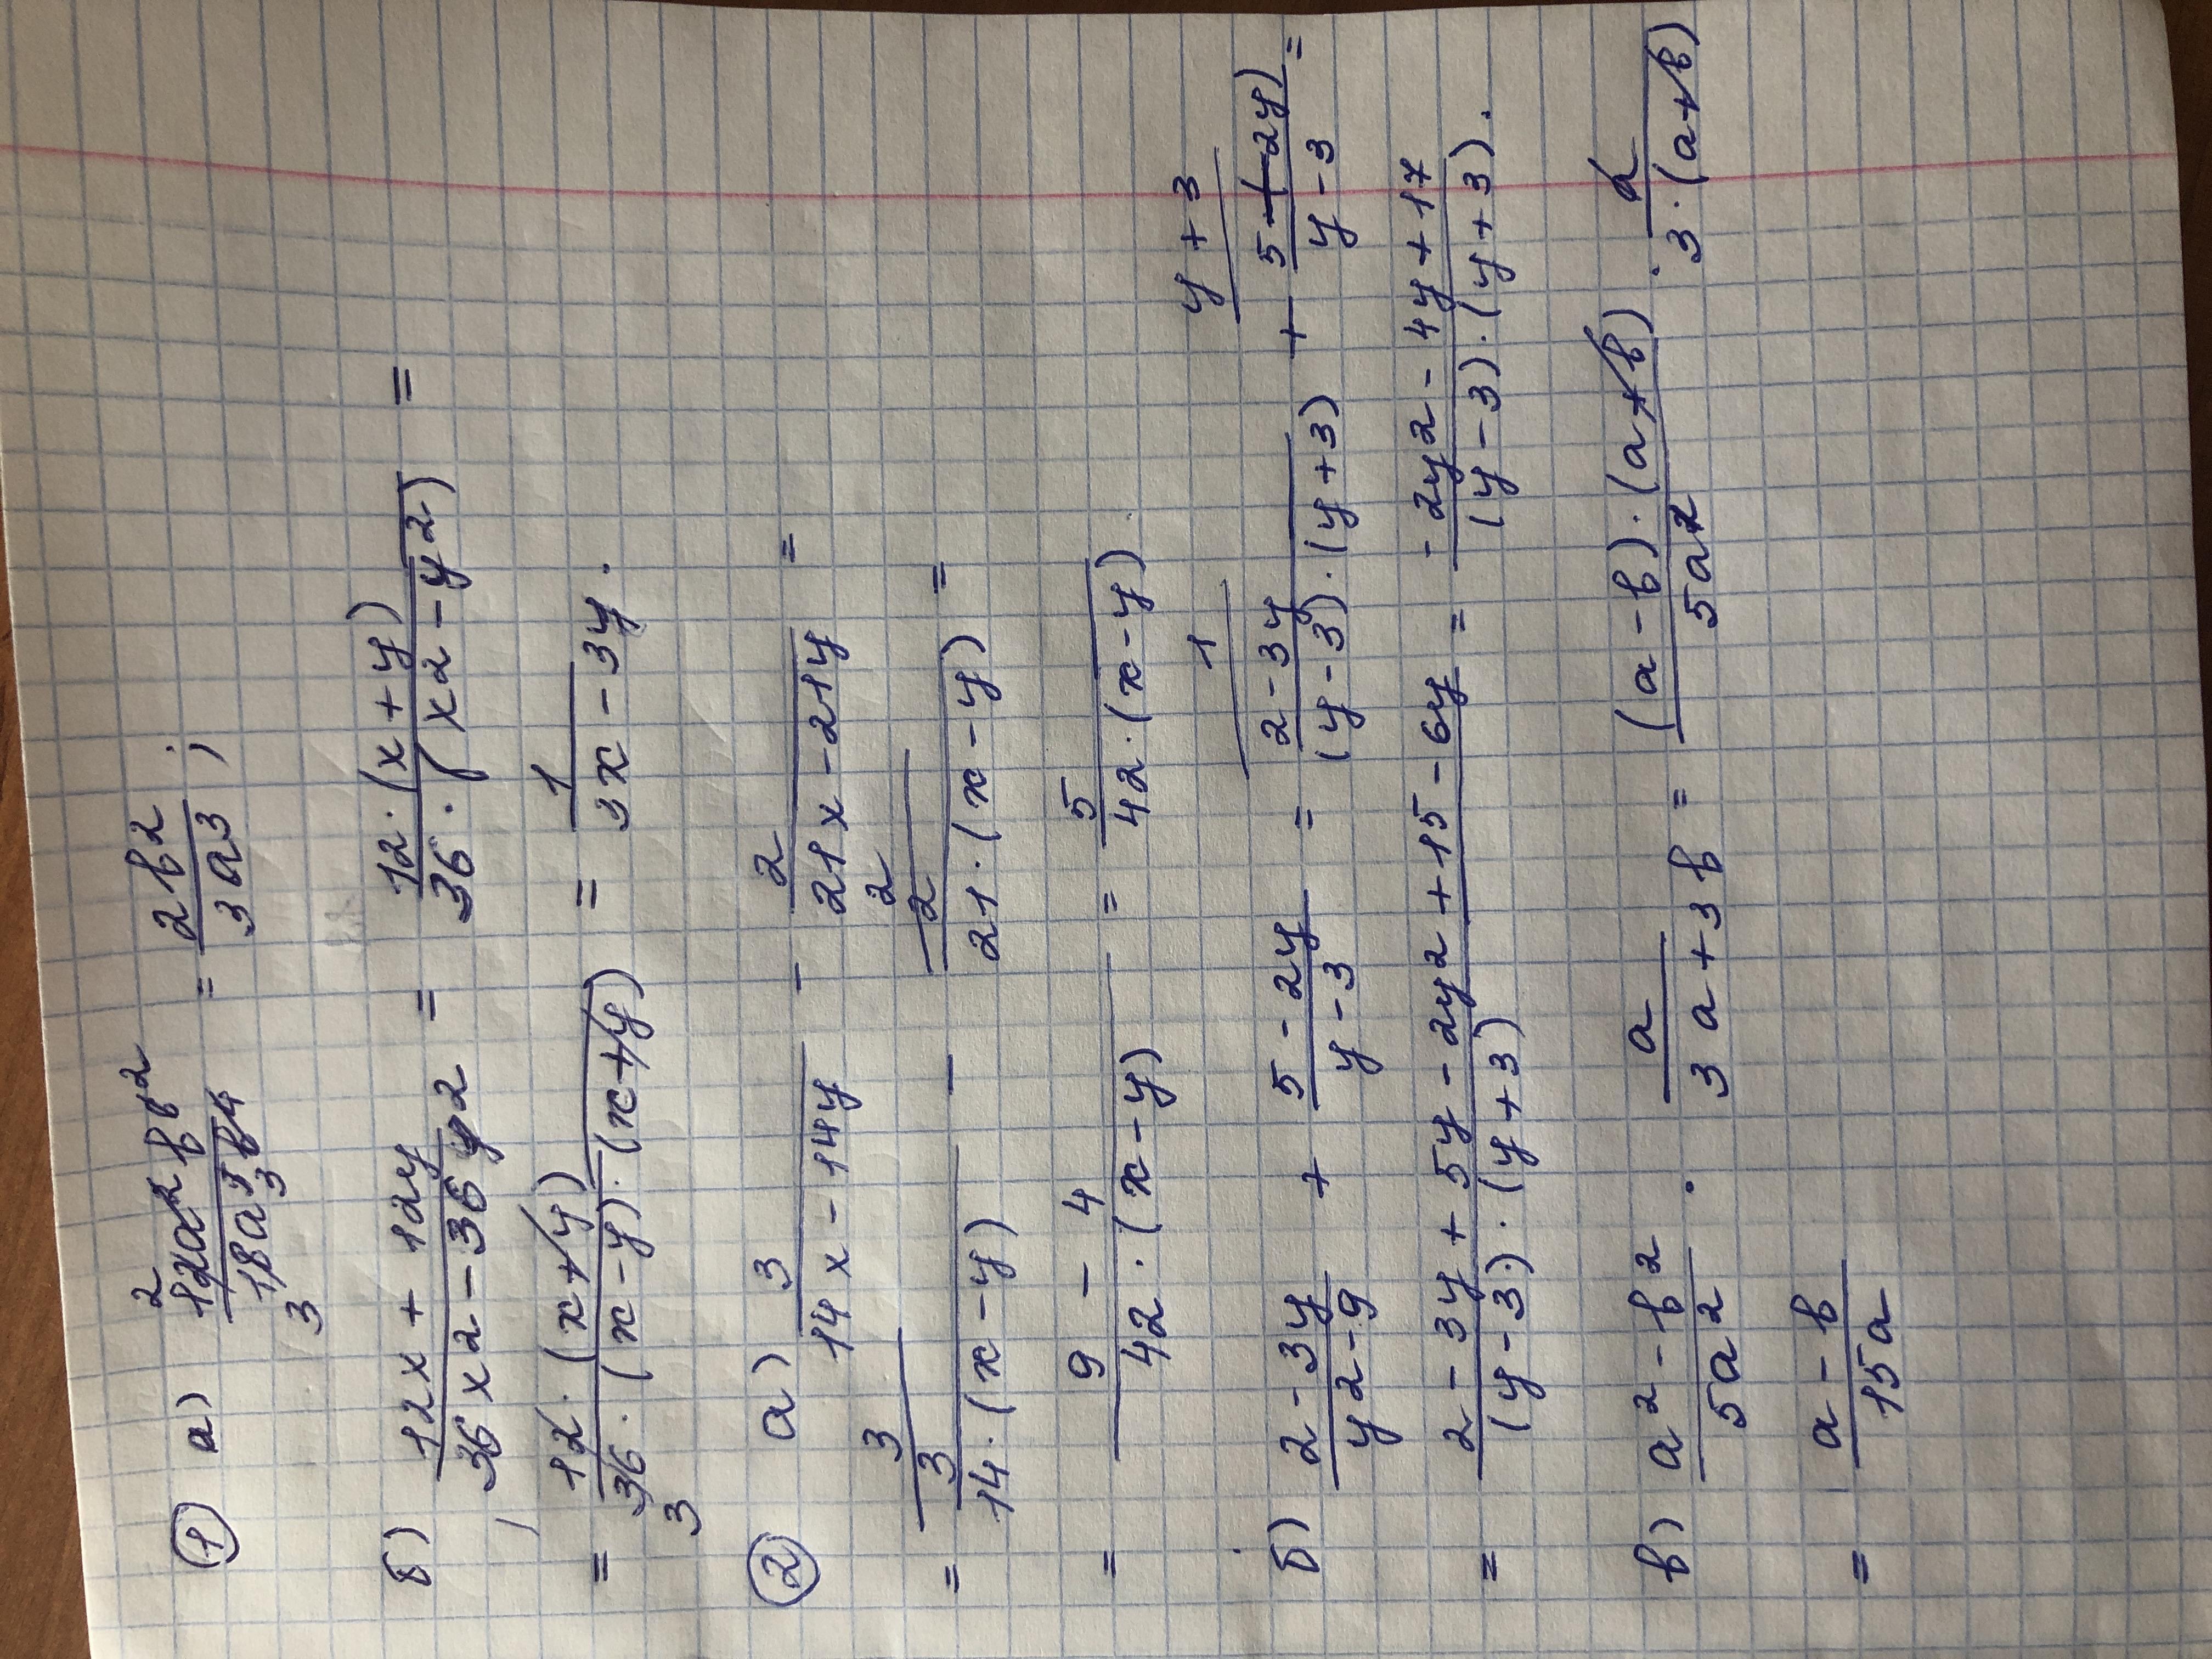 ① а) 12a²b b² / 18a⁵b⁴ = 2b² / 3a³ ;
б) 12x + 12y / 36x² - 36y² = 12·(x+y) / 36·(x² - y²) =
= 12·(x+y) / 36·(x-y)·(x+y) = 1 / 3x - 3y .
② а) 3 / 14x - 14y - 2 / 21x - 21y =
= 3 / 14·(x-y) - 2 / 21·(x-y) =
= 9 - 4 / 42·(x-y) = 5 / 42·(x-y)
б) 2 - 3y / y² - 9 + 5 - 2y / y - 3 = 2 - 3y / (y-3)·(y+3) + 5 - 2y / y - 3 =
= 2 - 3y + 5y - 2y² + 15 - 6y / (y-3)·(y+3) = - 2y² - 4y + 17 / (y-3)·(y+3) .
в) a² - b² / 5a² · a / 3a + 3b = (a-b)·(a+b) / 5a² · a / 3·(a+b)
= a - b / 15a